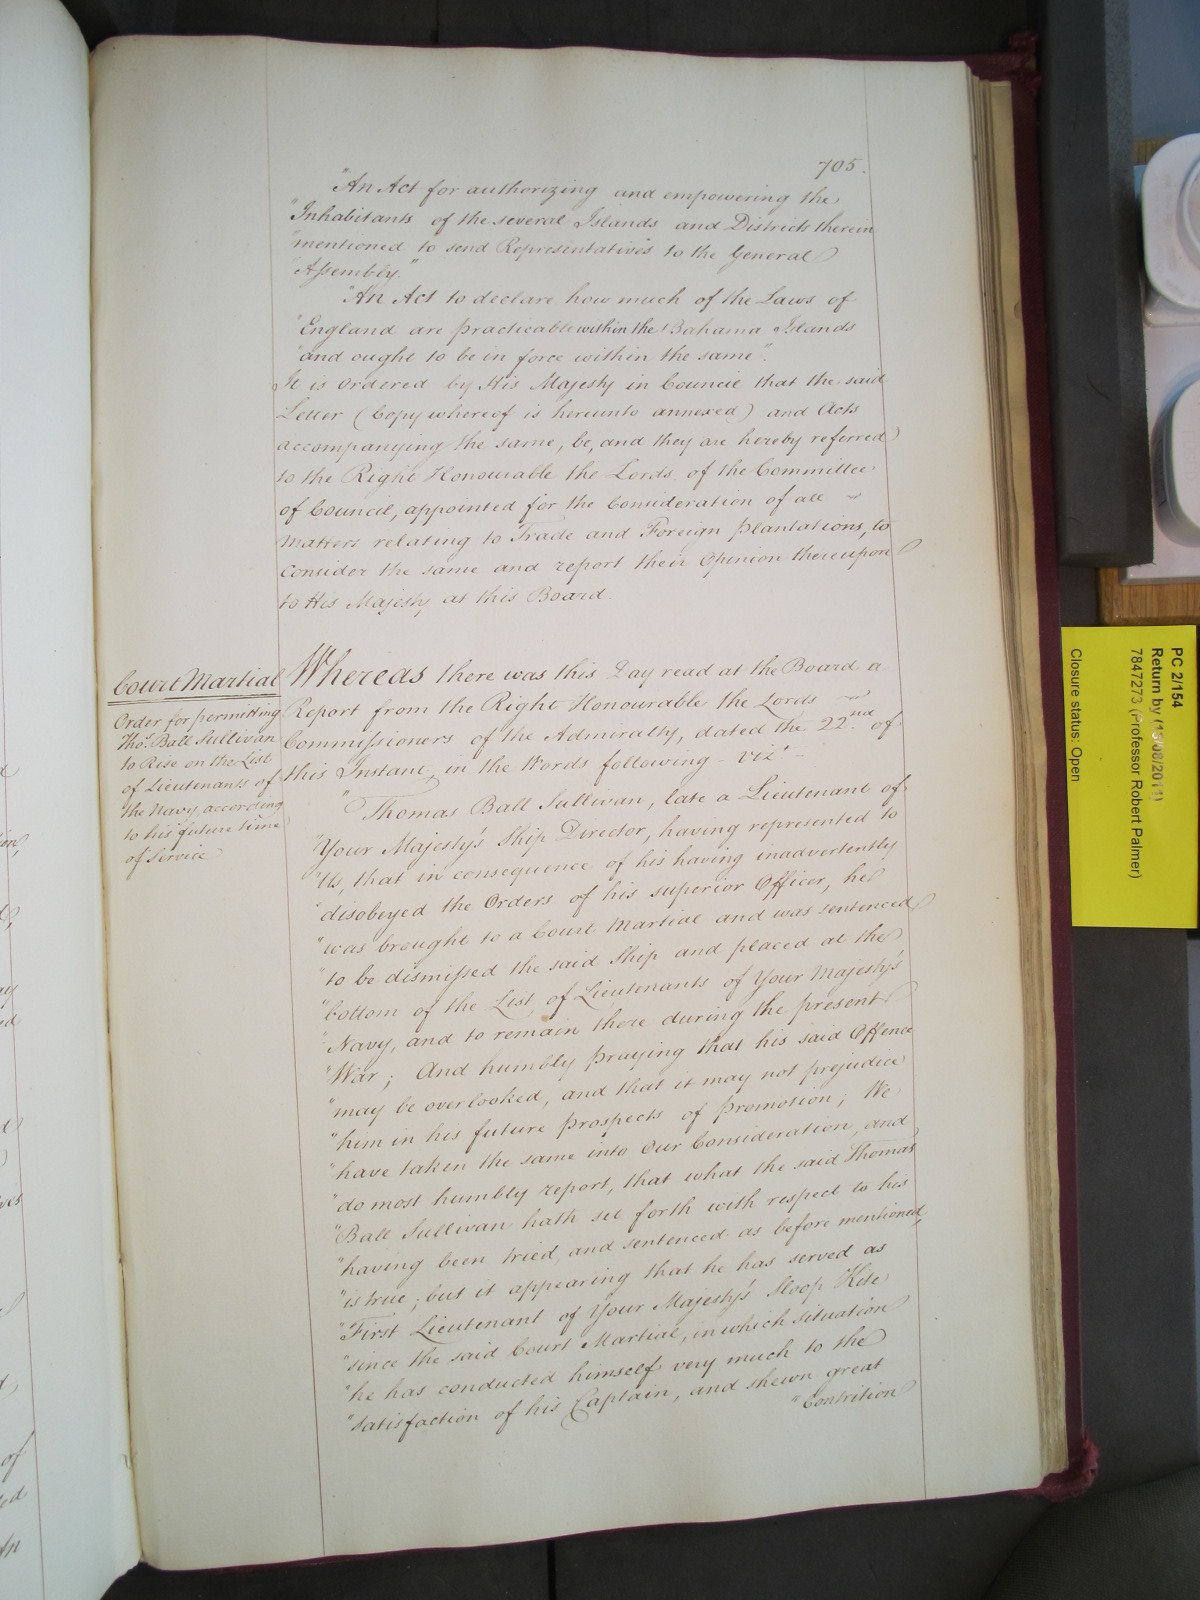 705.
"An Act for authorizing and empowering the
"Inhabitants of the several Islands and Districts therein
"mentioned to send Representatives to the General
"Assembly."
"An Act to declare how much of the Laws of
"England are practicable within the Bahama Islands
"and ought to be in force within the same".
It is ordered by His Majesty in Council that the said
Letter (Copy whereof is hereunto annexed) and Acts
accompanying the same, be, and they are hereby referred
to the Right Honourable the Lords of the Committee
of Council, appointed for the Consideration of all
Matters relating to Trade and Foreign Plantations, to
Consider the same and report their Opinion thereupon
to His Majesty at this Board.
Court Martial
Order for permitting
Thos. Ball Sullivan
to Rise on the List
of Lieutenants of
the Navy, according
to his future time
of Service
Whereas there was this Day read at the Board a
Report from the Right Honourable the Lords
Commissioners of the Admiralty, dated the 22nd. of
this Instant, in the Words following - vizt.
"Thomas Ball Sullivan, late a Lieutenant of
"Your Majesty's Ship Director, having represented to
"Us, that in consequence of his having inadvertently
"disobeyed the Orders of his superior Officer, he
"was brought to a Court Martial and was sentenced
"to be dismissed the said Ship and placed at the
"bottom of the List of Lieutenants of Your Majesty's
"Navy, and to remain there during the present
"War; And humbly praying that his said Offence
"may be overlooked, and that it may not prejudice
"him in his future prospects of promotion; We
"have taken the same into Our Consideration, and
"do most humbly report, that what the said Thomas
"Ball Sullivan hath set forth with respect to his
"having been tried, and sentenced as before mentioned,
"is true; but it appearing that he has served as
"First Lieutenant of Your Majesty's Sloop Kite
"since the said Court Martial, in which situation
"he has conducted himself very much to the
"satisfaction of his Captain, and shewn great
"Contrition
PC 2/154
Return by (15/08/2011)
7847273 (Professor Robert Palmer)
Closure status: Open